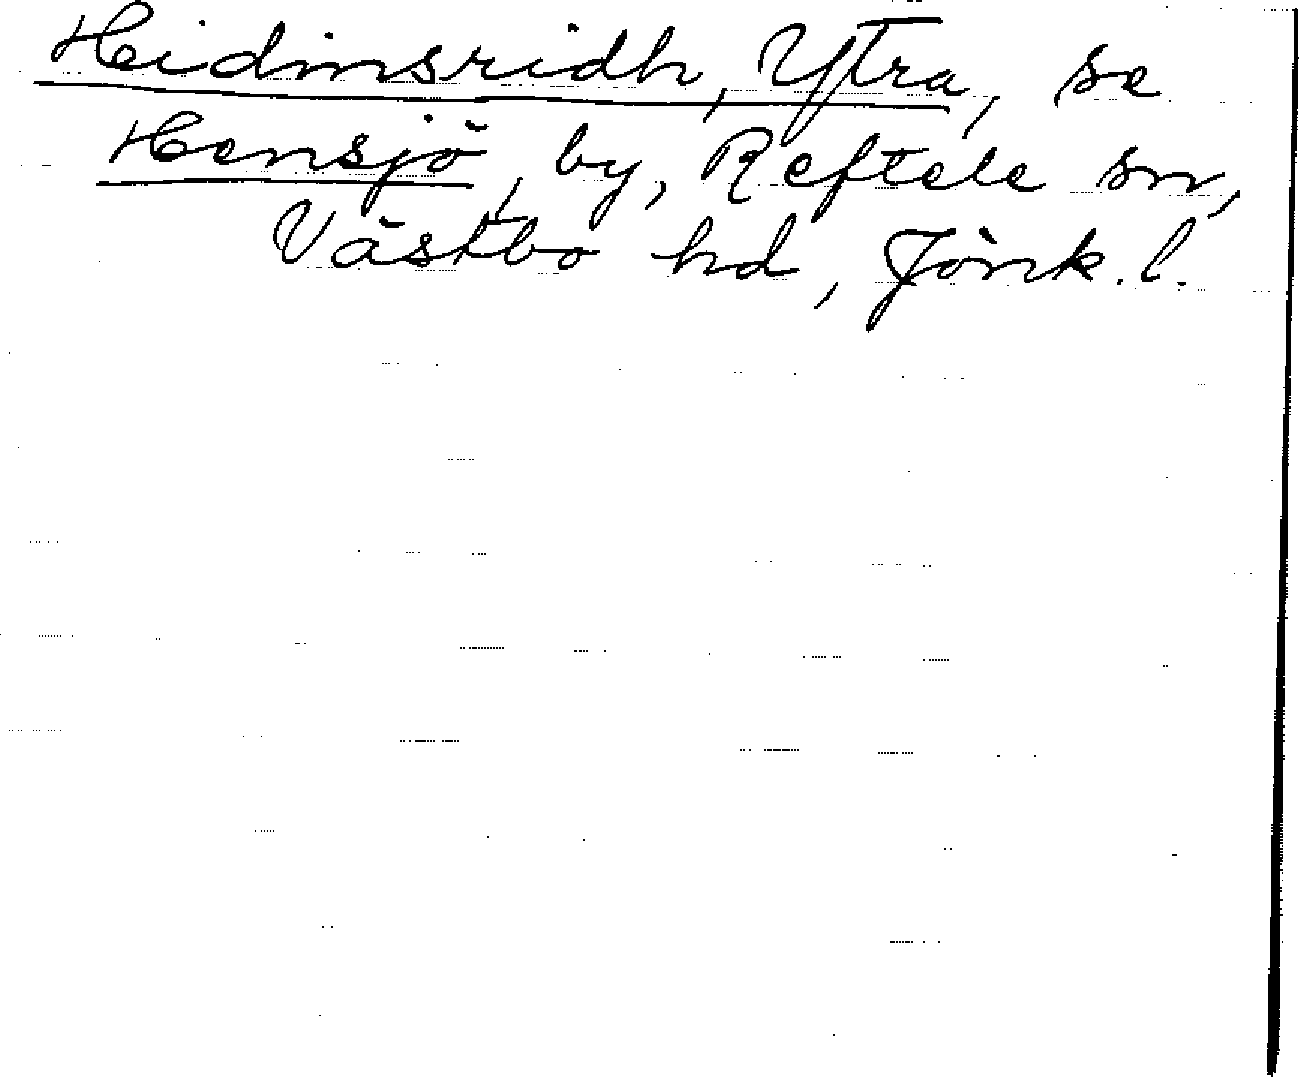 Heidinsridh, Ytra, se
Hensjö, by, Reftele sn,
Västbo hd, Jönk. l.